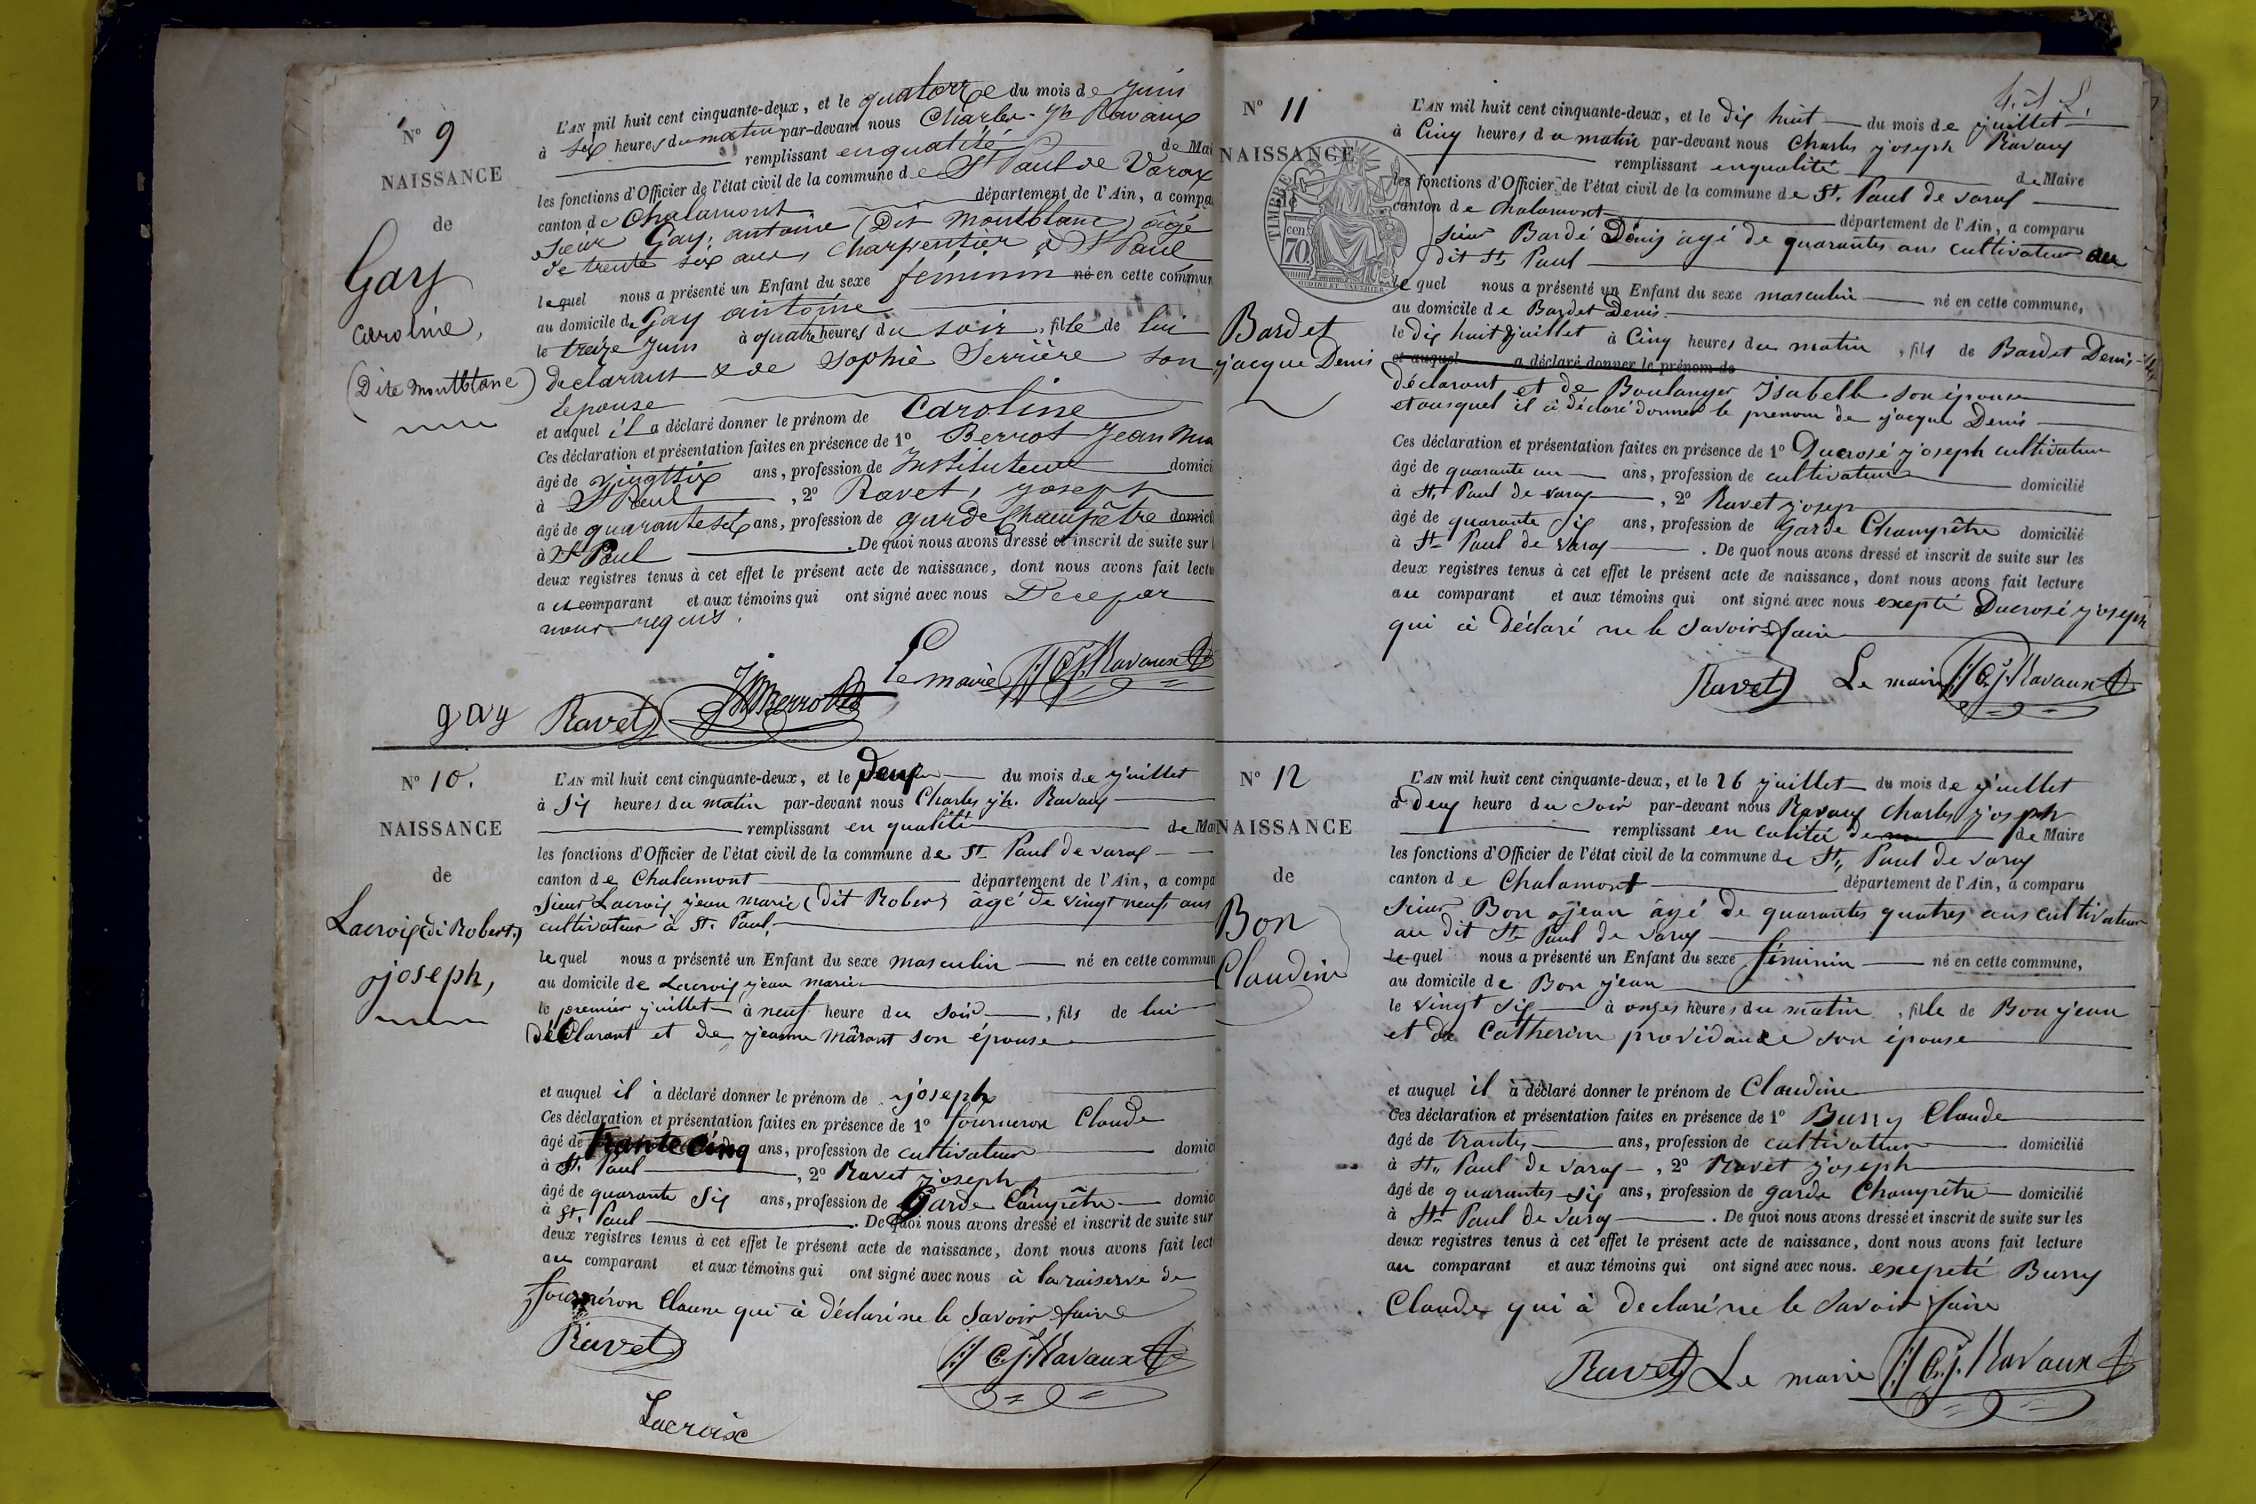 N° 9
NAISSANCE
de
Gay
Caroline,
(Dite Montblanc)
L'AN mil huit cent cinquante-deux, et le quatorze du mois de Juin
à six heures du matin par-devant nous Charles Jh Ravaux
remplissant en qualité de Mai
les fonctions d'Officier de l'état civil de la commune de St Paul de Varax
canton de Chalamont département de l'Ain, a compa
sieur Gay, antoine (Dit Montblanc) âgé
de trente six ans, Charpentier à St Paul
lequel nous a présenté un Enfant du sexe féminin né en cette commun
au domicile de Gay antoine
le treize Juin à quatre heures du soir, fille de lui
declarant & de Sophie Serrière son
Epouse
et auquel il a déclaré donner le prénom de Caroline
Ces déclaration et présentation faites en présence de 1° Berrot Jean Ma
âgé de vingt six ans, profession de Instituteur domici
à St Paul, 2° Ravet, Joseph
âgé de quarante six ans, profession de garde Champêtre domicil
à St Paul. De quoi nous avons dressé et inscrit de suite sur l
deux registres tenus à cet effet le présent acte de naissance, dont nous avons fait lectu
au comparant et aux témoins qui ont signé avec nous De ce par
nous requis.
Le maire C. J. Ravaux
gay Ravet JM Berrot
N° 10.
NAISSANCE
de
Lacroix (di Robert)
joseph,
L'AN mil huit cent cinquante-deux, et le Deux du mois de juillet
à Six heures du matin par-devant nous Charles jh. Ravaux
remplissant en qualité de Mai
les fonctions d'Officier de l'état civil de la commune de St Paul de varax
canton de Chalamont département de l'Ain, a compa
Sieur Lacroix jean marie (dit Robert) âgé de vingt neuf ans
cultivateur à St. Paul,
lequel nous a présenté un Enfant du sexe masculin né en cette commun
au domicile de Lacroix jean marie
le premier juillet à neuf heure du soir, fils de lui
déClarant et de jeanne Mârant son épouse
et auquel il à déclaré donner le prénom de joseph
Ces déclaration et présentation faites en présence de 1° fourneron Claude
âgé de trante Cinq ans, profession de cultivateur domici
à St. Paul, 2° Ravet joseph
âgé de quarante Six ans, profession de Garde Câmpêtre domici
à St. Paul. De quoi nous avons dressé et inscrit de suite sur
deux registres tenus à cet effet le présent acte de naissance, dont nous avons fait lect
au comparant et aux témoins qui ont signé avec nous à la raiserve de
fournéron Claune qui à déclaré ne le savoir faire
Ravet C. J. Ravaux
Lacroix
N° 11
NAISSANCE
TIMBRE
cen
70.
Bardet
jacque Denis
L'AN mil huit cent cinquante-deux, et le dix huit du mois de juillet
à Cinq heures du matin par-devant nous Charles joseph Ravaux
remplissant en qualité de Maire
les fonctions d'Officier de l'état civil de la commune de St. Paul de varax
canton de Chalamont département de l'Ain, a comparu
sieur Bardé Dénis agé de quarantes ans cultivateur au
dit St. Paul
lequel nous a présenté un Enfant du sexe masculin né en cette commune,
au domicile de Bardet Denis.
le dix huit juillet à Cinq heures du matin, fils de Bardet Denis
et auquel a déclaré donner le prénom de
déclarant et de Boulanger Isabelle son épouse
et auquel il à déclaré donner le prenom de jacque Denis
Ces déclaration et présentation faites en présence de 1° Ducrosé joseph cultivateur
âgé de quarante un ans, profession de cultivateur domicilié
à St. Paul de varax, 2° Ravet josep
âgé de quarante Six ans, profession de Garde Champêtre domicilié
à St Paul de varax. De quoi nous avons dressé et inscrit de suite sur les
deux registres tenus à cet effet le présent acte de naissance, dont nous avons fait lecture
au comparant et aux témoins qui ont signé avec nous exepté Ducrosé joseph
qui à Déclaré ne le savoir faire
Ravet Le maire C. J. Ravaux
N° 12
NAISSANCE
de
Bon
Claudine
L'AN mil huit cent cinquante-deux, et le 26 juillet du mois de juillet
à deux heure du soir par-devant nous Ravaux Charles joseph
remplissant en calitée de de Maire
les fonctions d'Officier de l'état civil de la commune de St, Paul de varax
canton de Chalamont département de l'Ain, a comparu
sieur Bon jean âgé de quarantes quatres ans cultivateur
au dit St Paul de varax
lequel nous a présenté un Enfant du sexe féminin né en cette commune,
au domicile de Bon jean
le vingt six à onzes heures du matin, fille de Bon jean
et de Catherine providance son épouse
et auquel il à déclaré donner le prénom de Claudine
Ces déclaration et présentation faites en présence de 1° Burry Claude
âgé de trantes ans, profession de cultivateur domicilié
à St, Paul de varax, 2° Ravet joseph
âgé de quarantes six ans, profession de garde Champêtre domicilié
à St Paul de varax. De quoi nous avons dressé et inscrit de suite sur les
deux registres tenus à cet effet le présent acte de naissance, dont nous avons fait lecture
au comparant et aux témoins qui ont signé avec nous. exepeté Burry
Claude qui à declaré ne le savoir faire
Ravet Le maire C. J. Ravaux